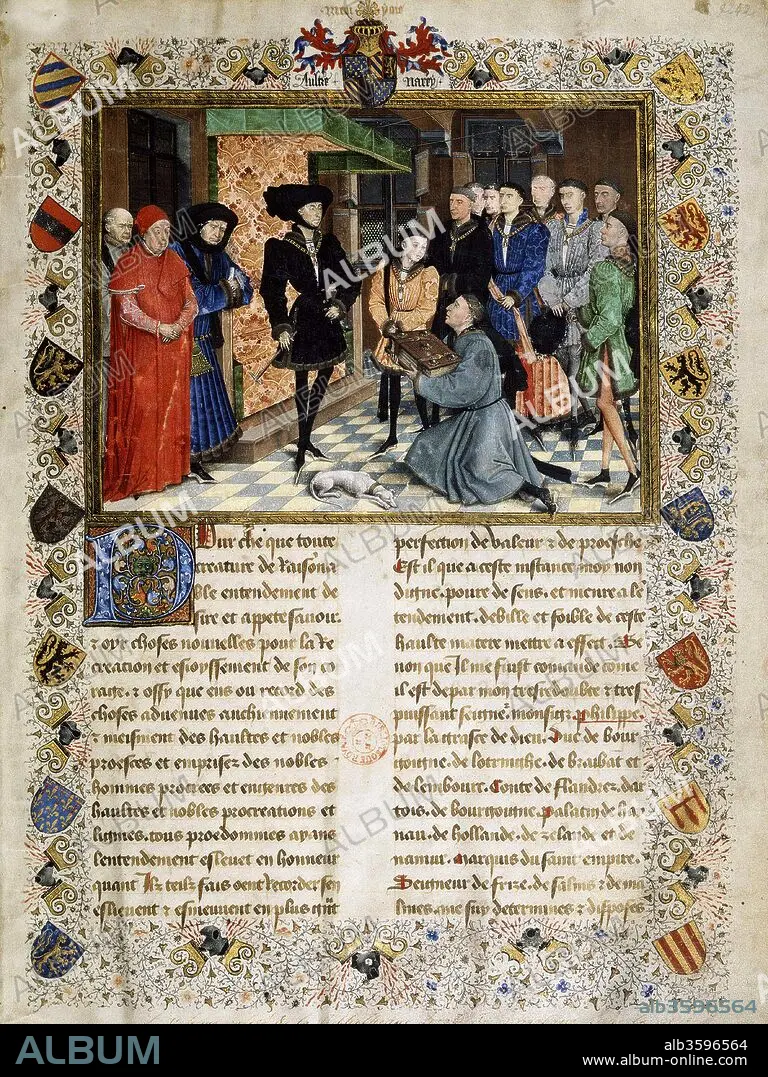 9242
Aultre narey
Pour che que toute
creature de Raisona
ble entendement de
sire et appete savoir
& oyr choses nouvelles pour la Re
creation et esioyssement de son co
rage. & ossy que ens ou record des
choses advenues anchiennement
& meisment des haultes et nobles
proesces et emprises des nobles
hommes procrees et engenres des
haultes et nobles procreations et
lignes. tous proedommes ayans
lentendement eslevet en honneur
quant Ilz telz fais oent Recorder sen
eslievent & esmeuvent en plus gnt
perfection de valeur & de proesche
Est il que a ceste instance moy non
digne. povre de sens. et menre de
tendement. debille et foible de ceste
haulte matere mettre a effect. Ne
non que Il me fuist comande come
il est de par mon tresredoubte & tres
puissant seigne. monsigr. Phelippe.
par la grasce de dieu. Duc de bour
goingne. de lotringhe. de brabant et
de lembourc. Conte de flandrez. dar
tois. de bourgoingne. palatin de hay
nau. de hollande. de zelande et de
namur. Marquis du saint empire.
Seigneur de frize. de salins & de ma
lines. que suy determines & disposes
ALBUM
alb3596564
ALBUM
alb3596564
www.album-online.com